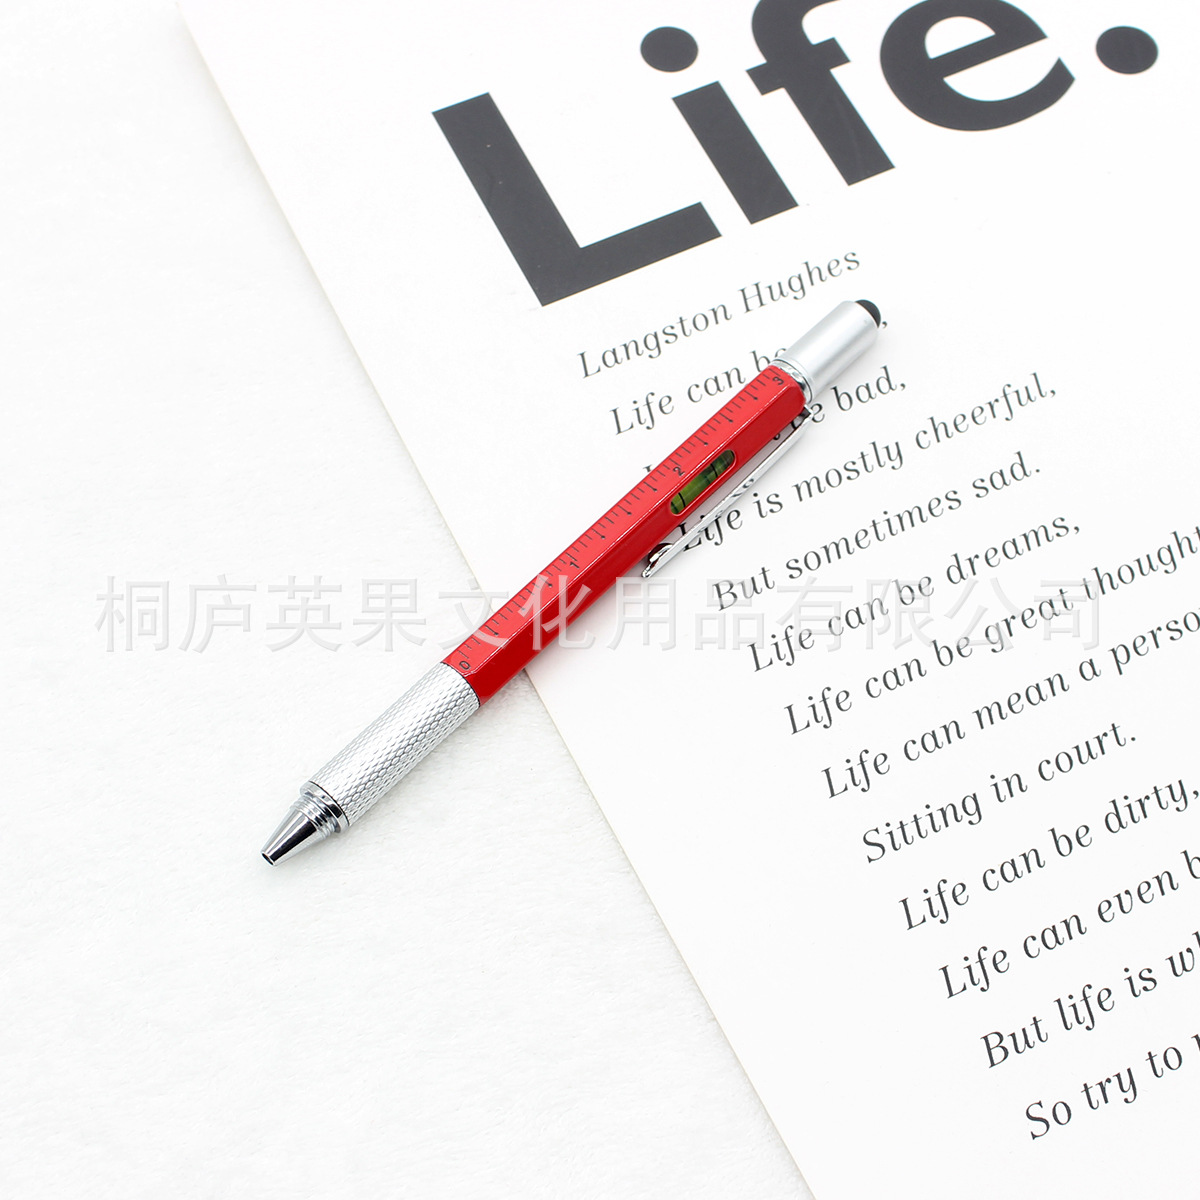 Life.
Langston Hughes
Life can be
be bad,
Life is mostly cheerful,
But sometimes sad.
Life can be dreams,
Life can be great thought
Life can mean a perso
Sitting in court.
Life can be dirty,
Life can even b
But life is wh
So try to
0 1 2 3
桐庐英果文化用品有限公司